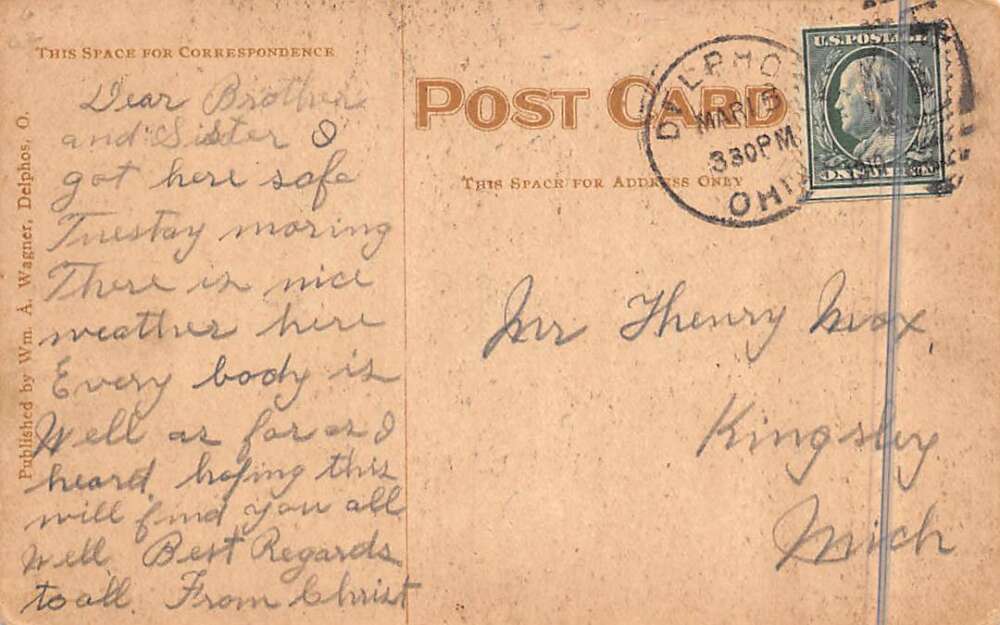 THIS SPACE FOR CORRESPONDENCE
Dear Brother
and Sister I
got here safe
Tuestay moring
There is nice
weather here
Every body is
Well as far as I
heard. hoping this
will find you all
Well. Best Regards
to all. From Christ
Published by Wm. A. Wagner, Delphos, O.
POST CARD
THIS SPACE FOR ADDRESS ONLY
DELPHOS
MAR 15
330PM
OHIO
U.S. POSTAGE
ONE CENT
Mr Henry Mox,
Kingsley
Mich